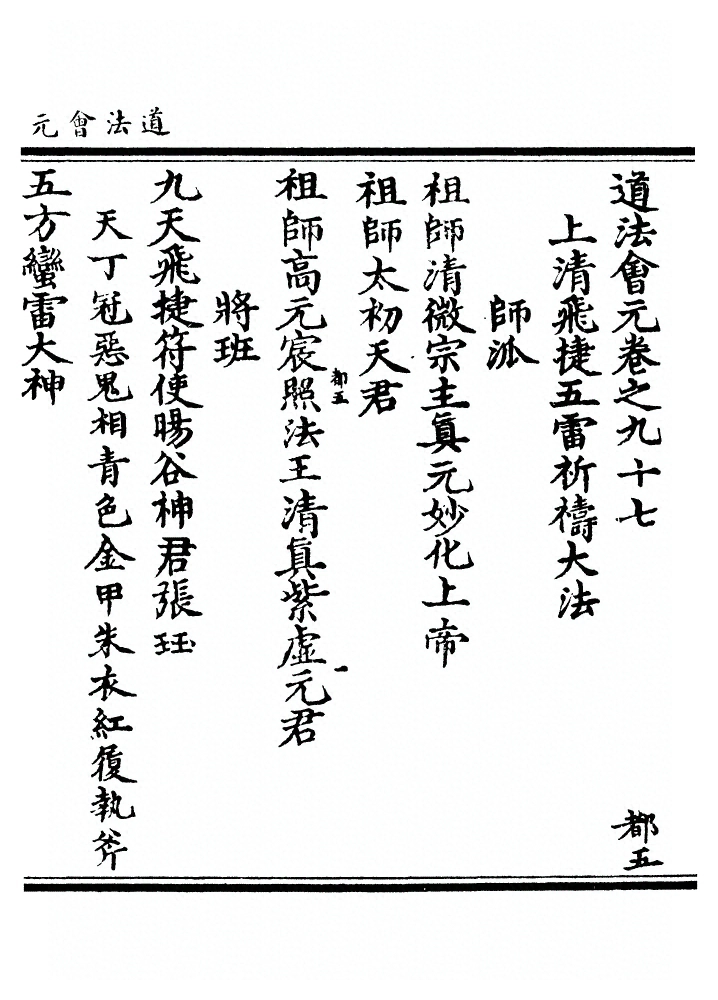 道法會元
道法會元卷之九十七 都五
上清飛捷五雷祈禱大法
師派
祖師清微宗主眞元妙化上帝
祖師太初天君
都五 一
祖師高元宸照法王清眞紫虛元君
將班
九天飛捷符使暘谷神君張珏
天丁冠惡鬼相青色金甲朱衣紅履執斧
五方蠻雷大神